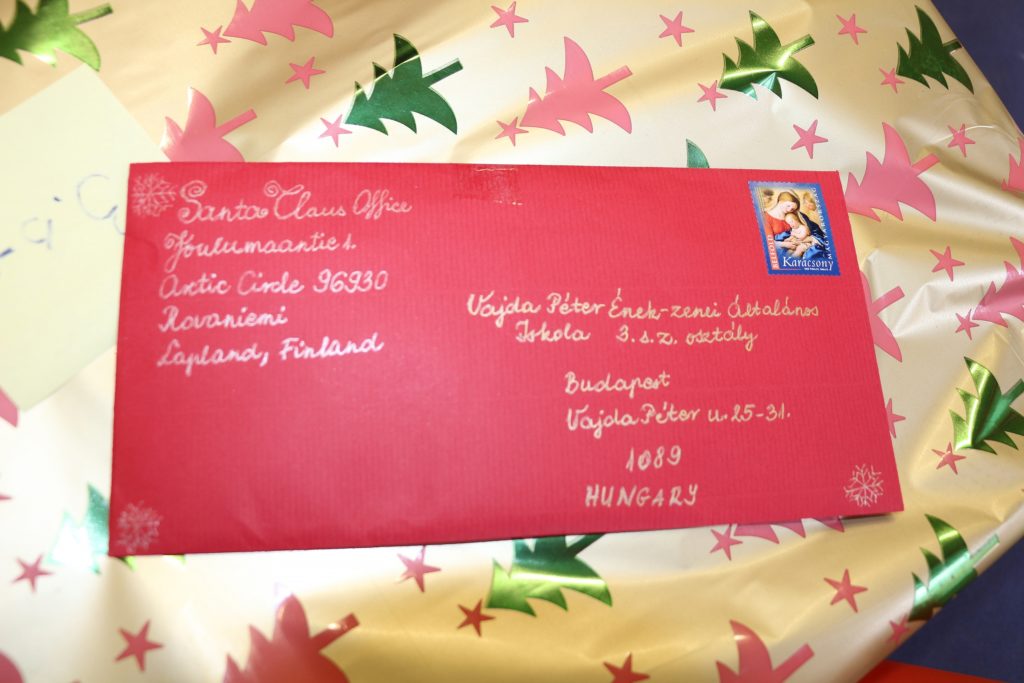 Santa Claus Office
Joulumaantie 1.
Arctic Circle 96930
Rovaniemi
Lapland, Finland
BELFÖLD
MAGYARORSZÁG
Karácsony
Vajda Péter Ének-zenei Általános
Iskola 3.s.z. osztály
Budapest
Vajda Péter u. 25-31.
1089
HUNGARY